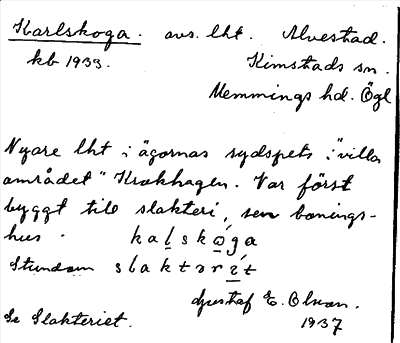 Karlskoga. avs. lht. Alvestad.
kb 1933. Kimstads sn.
Memmings hd. Ögl
Nyare lht i ägornas sydspets i "villa
området" Krokhagen. Var först
byggt till slakteri, sen bonings-
hus. kalskǫ́ga
Stundom slaktərít
Gustaf E. Olson.
Se Slakteriet. 1937